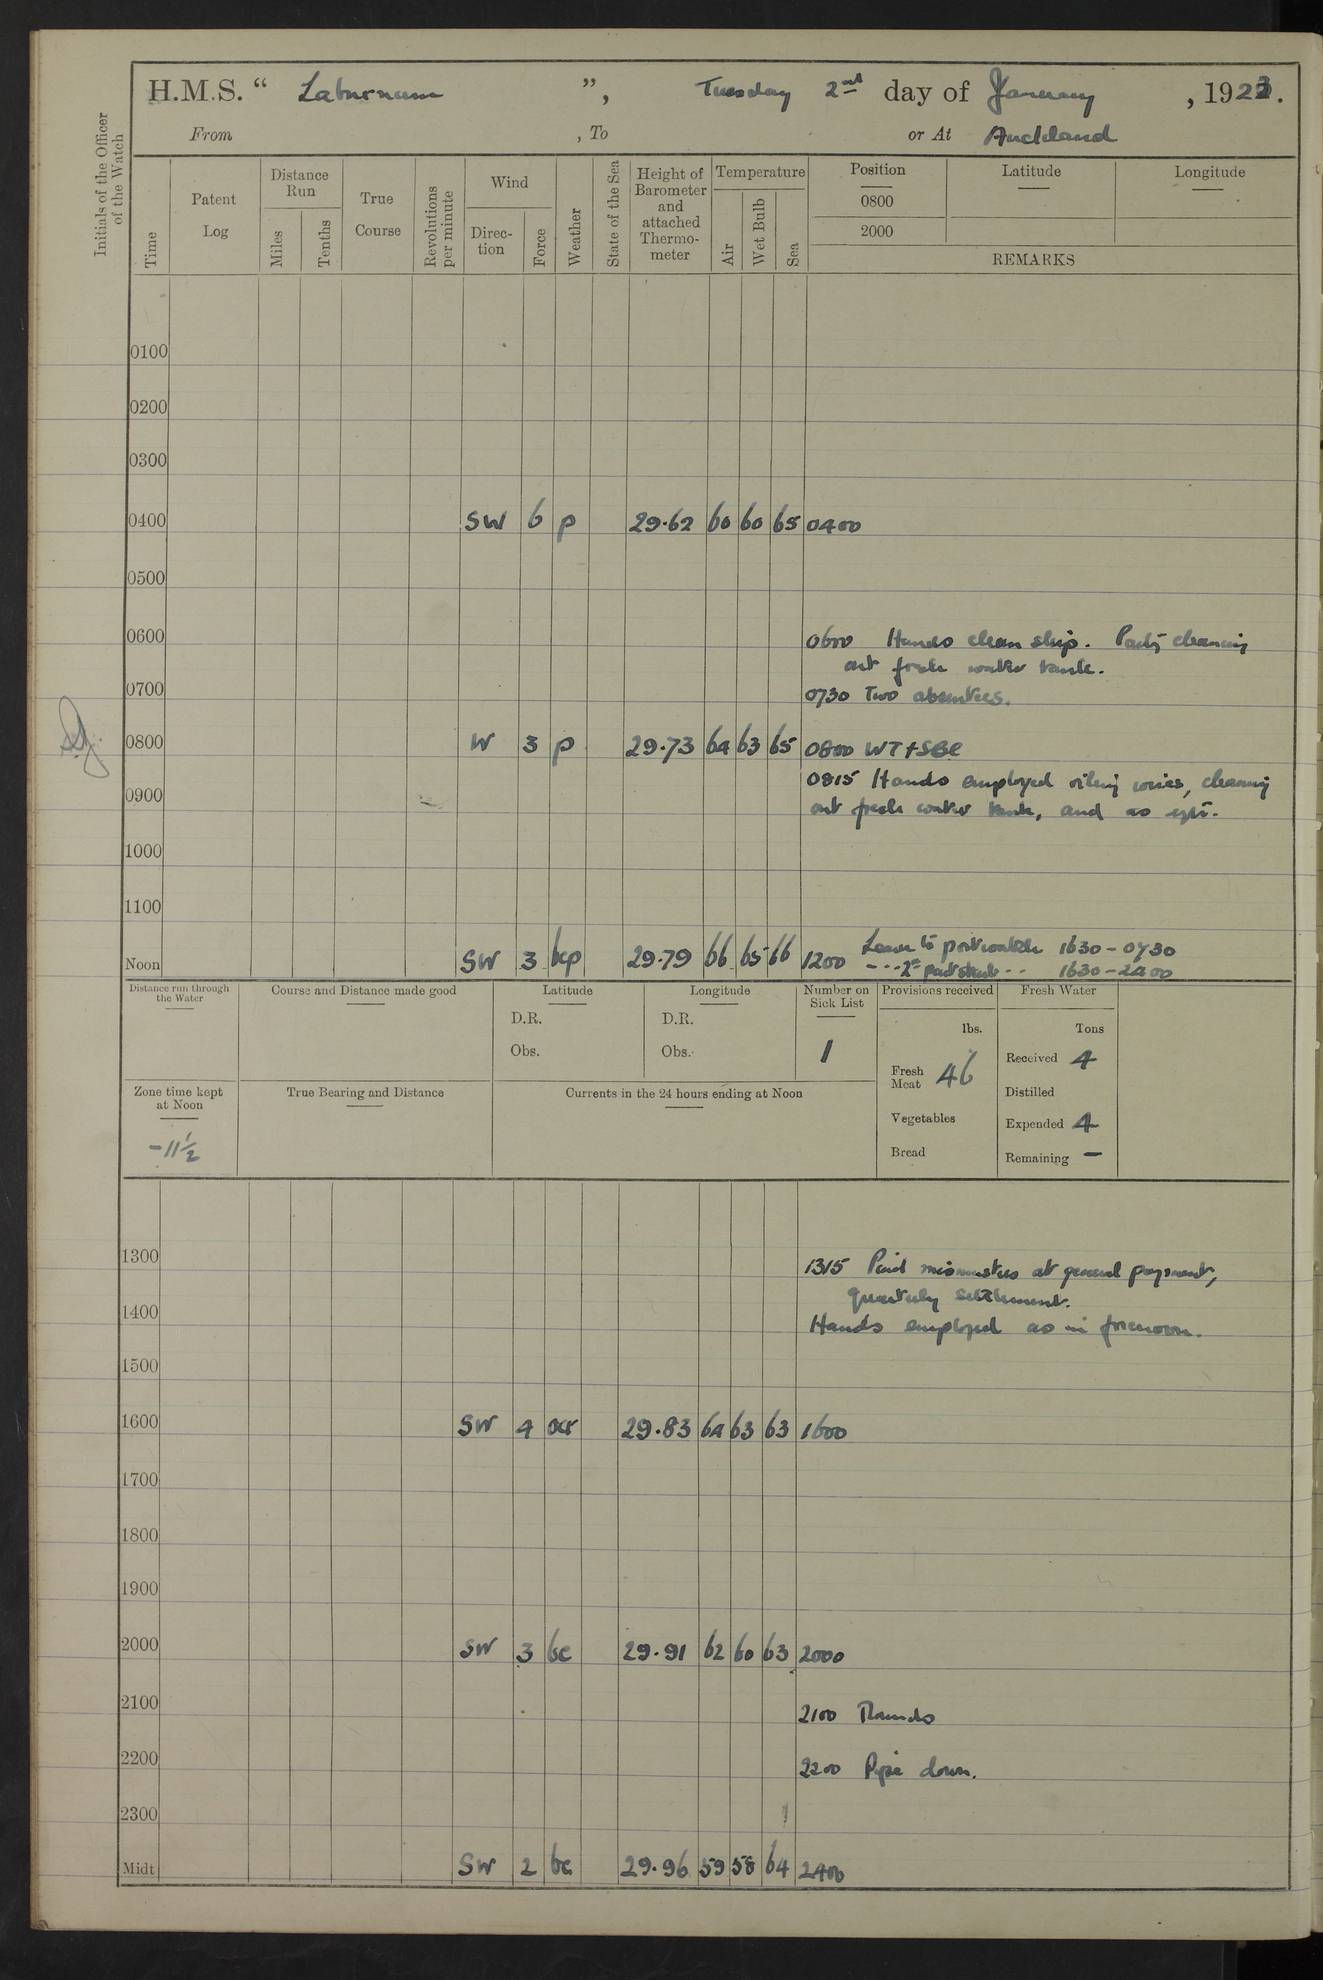 H.M.S. “ Laburnum ”, Tuesday 2nd day of January, 1923.
From , To or At Auckland
Initials of the Officer of the Watch
Time
Patent Log
Distance Run
Miles
Tenths
True Course
Revolutions per minute
Wind
Direction
Force
Weather
State of the Sea
Height of Barometer and attached Thermometer
Temperature
Air
Wet Bulb
Sea
Position Latitude Longitude
0800
2000
REMARKS
0100
0200
0300
0400 SW 6 p 29.62 60 60 65 0400
0500
0600 0600 Hands clean ship. Party cleaning
out fresh water tank.
0700 0730 Two absentees.
0800 W 3 p 29.73 64 63 65 0800 WT+SBE
0815 Hands employed oiling wires, cleaning
0900 out fresh water tank, and as req.
1000
1100
Leave to port watch 1630-0730
Noon SW 3 bcp 29.79 66 65 66 1200 - - - 2nd part starb - - 1630-2400
Distance run through the Water
Course and Distance made good
Latitude
D.R.
Obs.
Longitude
D.R.
Obs.
Number on Sick List
1
Provisions received
lbs.
Fresh Meat 46
Vegetables
Bread
Fresh Water
Tons
Received 4
Distilled
Expended 4
Remaining -
Zone time kept at Noon
-11½
True Bearing and Distance
Currents in the 24 hours ending at Noon
1300 1315 Paid mismusters at general payment,
quarterly settlement.
1400 Hands employed as in forenoon.
1500
1600 SW 4 ocr 29.83 64 63 63 1600
1700
1800
1900
2000 SW 3 bc 29.91 62 60 63 2000
2100 2100 Rounds
2200 2200 Pipe down.
2300
Midt SW 2 bc 29.96 59 58 64 2400